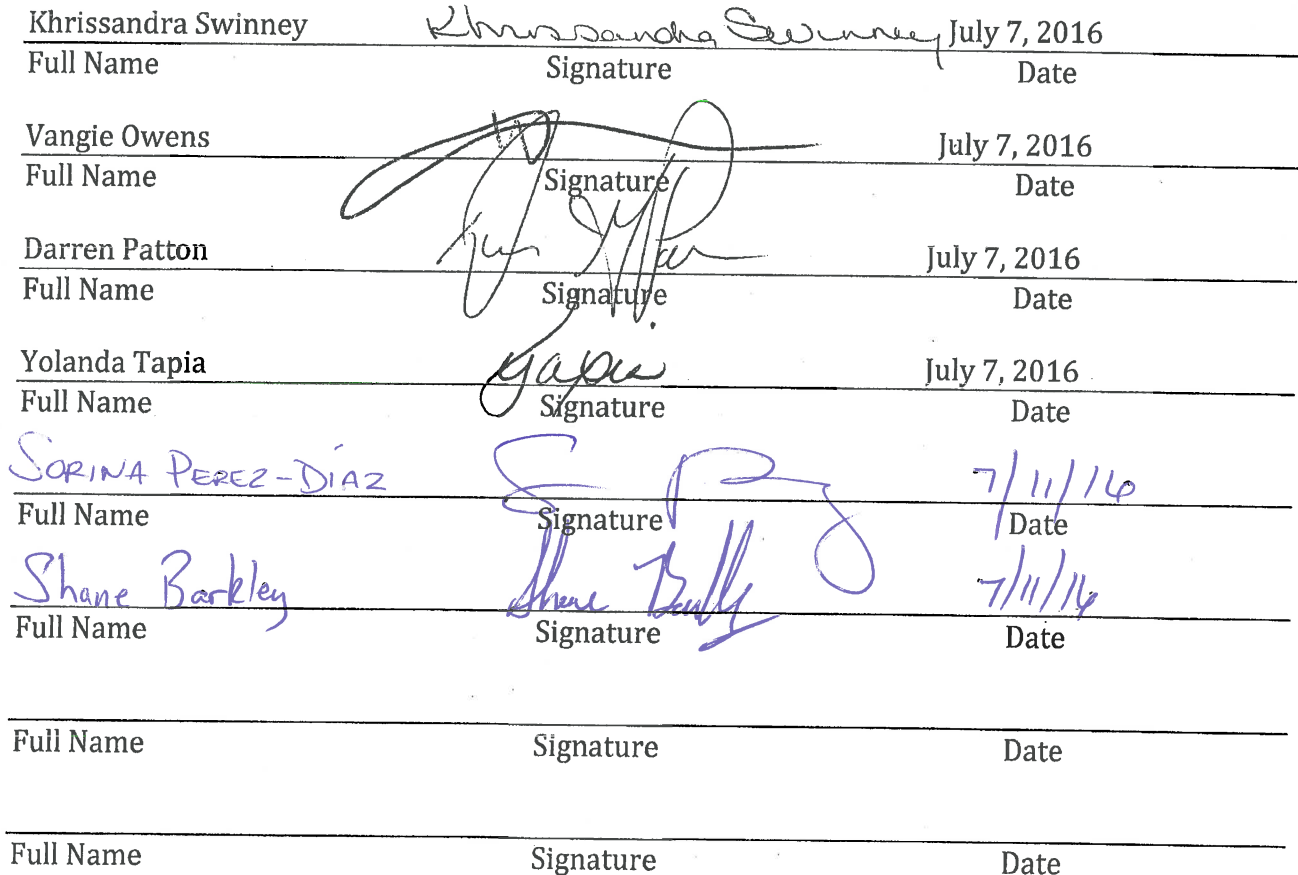 Khrissandra Swinney Khrissandra Swinney July 7, 2016
Full Name Signature Date
Vangie Owens July 7, 2016
Full Name Signature Date
Darren Patton July 7, 2016
Full Name Signature Date
Yolanda Tapia July 7, 2016
Full Name Signature Date
SORINA PEREZ-DÍAZ 7/11/16
Full Name Signature Date
Shane Barkley Shane Barkley 7/11/16
Full Name Signature Date
Full Name Signature Date
Full Name Signature Date